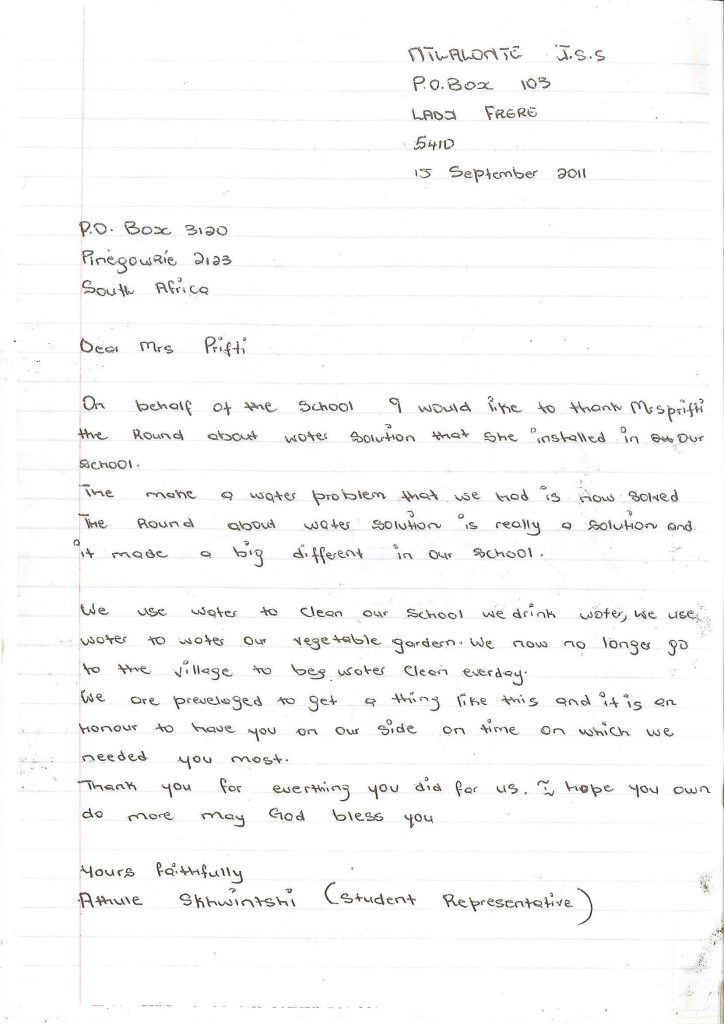 NTLALONTLE J.S.S
P.O.Box 103
LADY FRERE
5410
15 September 2011
P.O. Box 3120
Pinegowrie 2123
South Africa
Dear Mrs Prifti
On behalf of the School I would like to thank Mrs prifti
the Round about water solution that she installed in Our
school.
The make a water problem that we had is now solved
The Round about water solution is really a solution and
it made a big different in our school.
We use water to clean our school we drink water, we use
water to water our vegetable gardern. We now no longer go
to the village to beg water clean everday.
We are preveleged to get a thing like this and it is an
honour to have you on our side on time on which we
needed you most.
Thank you for everthing you did for us. I hope you own
do more may God bless you
Yours faithfully
Athule Skhwintshi (Student Representative)